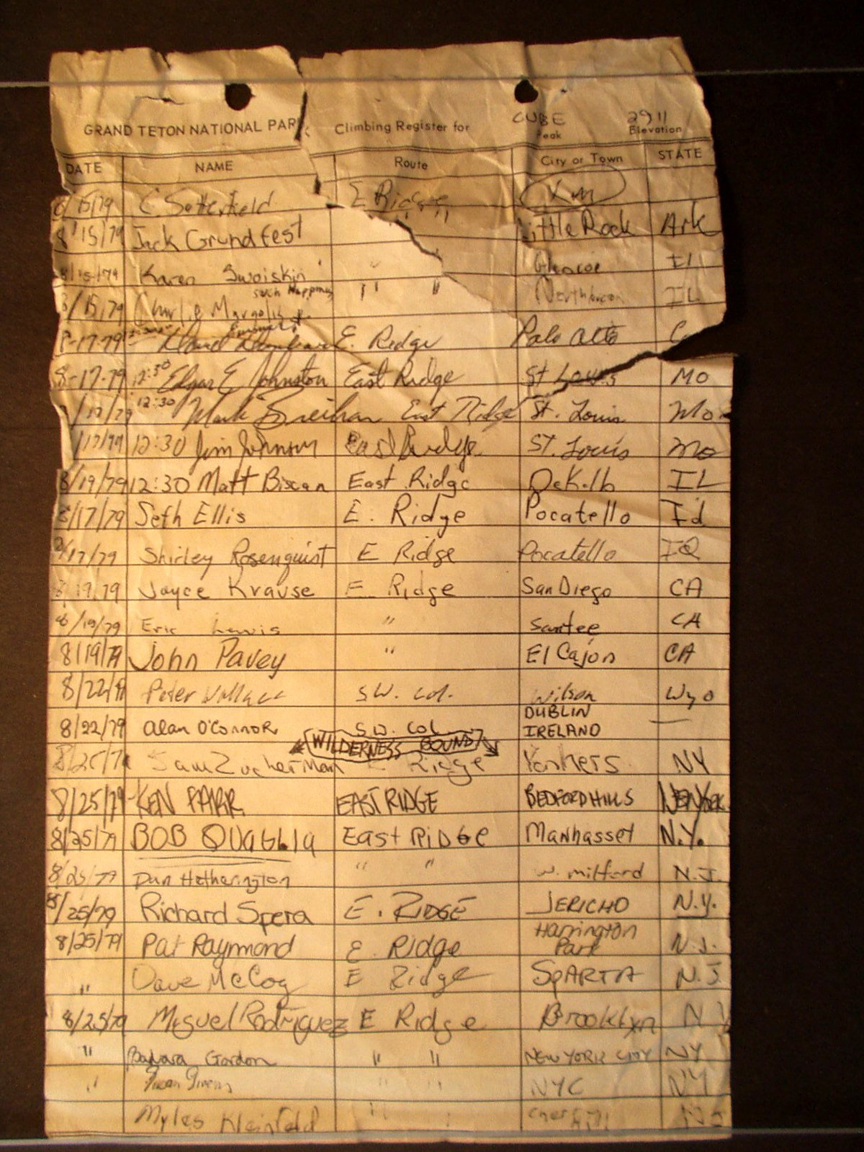 CUBE 2911
GRAND TETON NATIONAL PARK Climbing Register for Peak Elevation
DATE NAME Route City or Town STATE
/15/79 C Satterfield E Ridge
8/15/79 Jack Grundfest " Little Rock Ark
8/15/79 Karen Swoiskin " " Glencoe IL
8/15/79 Charlie Margolis Northbrook IL
8-17-79 David E. Ridge Palo Alto C
8-17-79 12:30 Edgar E Johnston East Ridge St Louis MO
/17/79 12:30 Mark East Ridge St. Louis Mo
/17/79 12:30 Jim Johnson East Ridge ST. Louis mo
8/19/79 12:30 Matt Biscan East Ridge DeKalb IL
8/17/79 Seth Ellis E. Ridge Pocatello Id
8/17/79 Shirley Rosenquist E Ridge Pocatello ID
8.19.79 Joyce Krause E Ridge San Diego CA
8/19/79 Eric Lewis " Santee CA
8/19/79 John Pavey " El Cajon CA
8/22/79 Peter Wallace SW. Col. Wilson Wyo
8/22/79 Alan O'CONNOR S.W. Col DUBLIN IRELAND —
WILDERNESS BOUND
8/25/79 Sam Zucherman E Ridge Yonkers NY
8/25/79 KEN PARR EAST RIDGE BEDFORD HILLS NEW YORK
8/25/79 BOB QUAGLIA East RIDGE Manhasset N.Y.
8/25/79 Dan Hetherington " " W. milford N.J.
8/25/79 Richard Spera E. RIDGE JERICHO N.Y.
8/25/79 Pat Raymond E. Ridge Harrington Park N.J.
" Dave McCoy E Ridge SPARTA N.J
8/25/79 Miguel Rodriguez E Ridge Brooklyn N Y
" Barbara Gordon " " NEW YORK CITY NY
" Susan " " NYC NY
Myles Kleinfeld " "